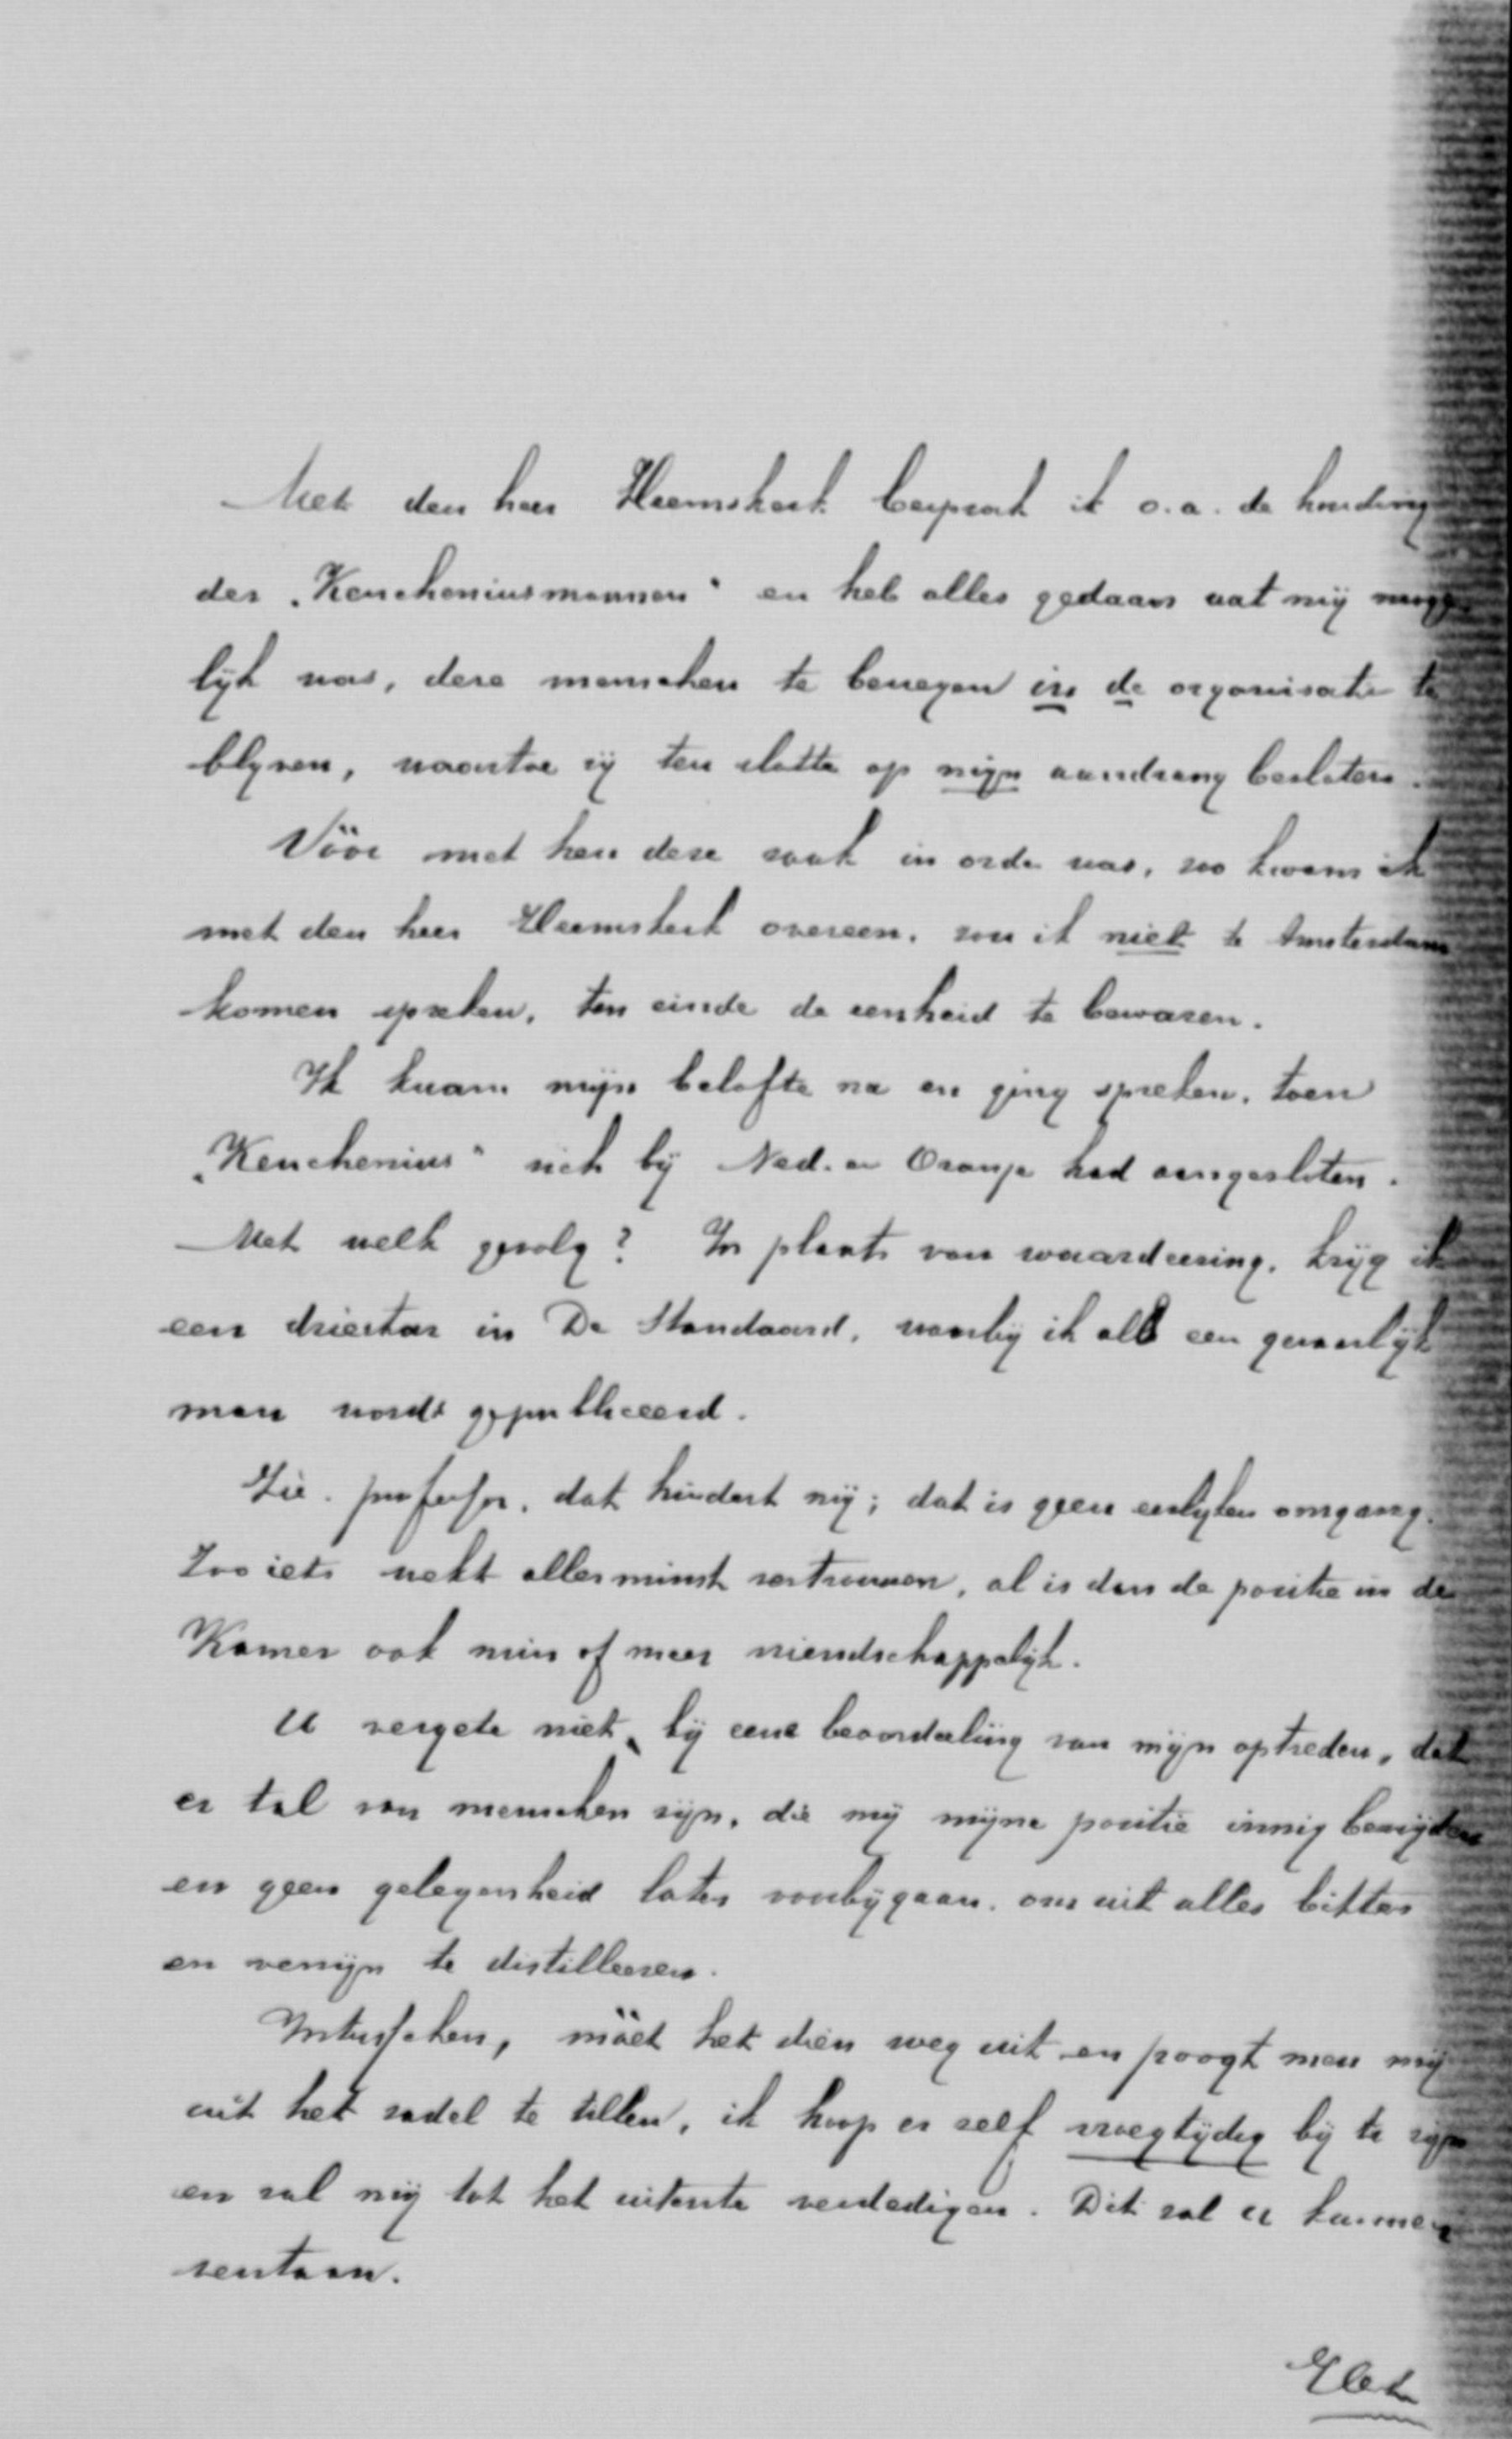 Met den heer Heemskerk besprak ik o.a. de houding
der „Keucheniusmannen" en heb alles gedaan wat mij moge-
lijk was, deze menschen te bewegen in de organisatie te
blijven, waartoe zij ten slotte op mijn aandrang besloten.
Vóór met hen deze zaak in orde was, zoo kwam ik
met den heer Heemskerk overeen, zou ik niet te Amsterdam
komen spreken, ten einde de eenheid te bewaren.
Ik kwam mijn belofte na en ging spreken, toen
„Keuchenius" zich bij Ned. en Oranje had aangesloten.
Met welk gevolg? In plaats van waardeering, krijg ik
een driestar in De Standaard, waarbij ik als een gevaarlijk
man wordt gepubliceerd.
Zie, professor, dat hindert mij; dat is geen eerlijken omgang.
Zoo iets wekt allerminst vertrouwen, al is dan de positie in de
Kamer ook min of meer vriendschappelijk.
U vergete niet, bij eene beoordeeling van mijn optreden, dat
er tal van menschen zijn, die mij mijne positie innig benijden
en geen gelegenheid laten voorbijgaan, om uit alles bitter
en venijn te distilleeren.
Intusschen, móet het dien weg uit en poogt men mij
uit het zadel te tillen, ik hoop er zelf vroegtijdig bij te zijn
en zal mij tot het uiterste verdedigen. Dit zal u kunnen
verstaan.